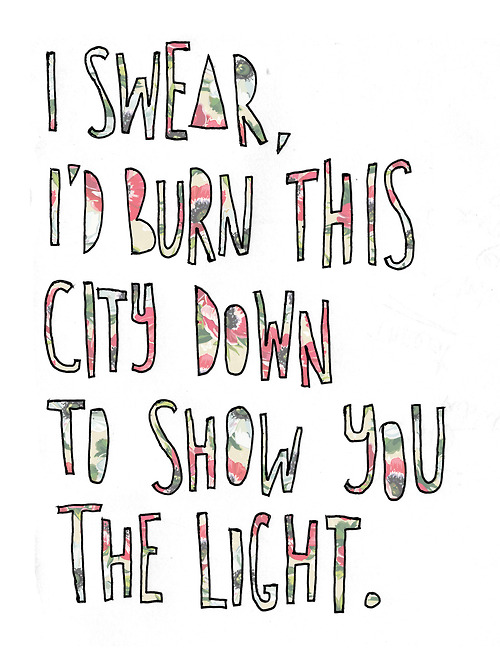 I SWEAR,
I'D BURN THIS
CITY DOWN
TO SHOW YOU
THE LIGHT.